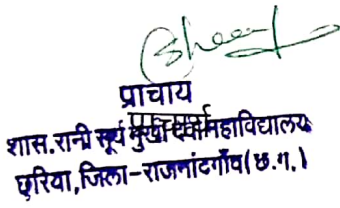 प्राचार्य
शास.रानी सूर्य मुखी देवी महाविद्यालय
छुरिया,जिला-राजनांदगाँव(छ.ग.)